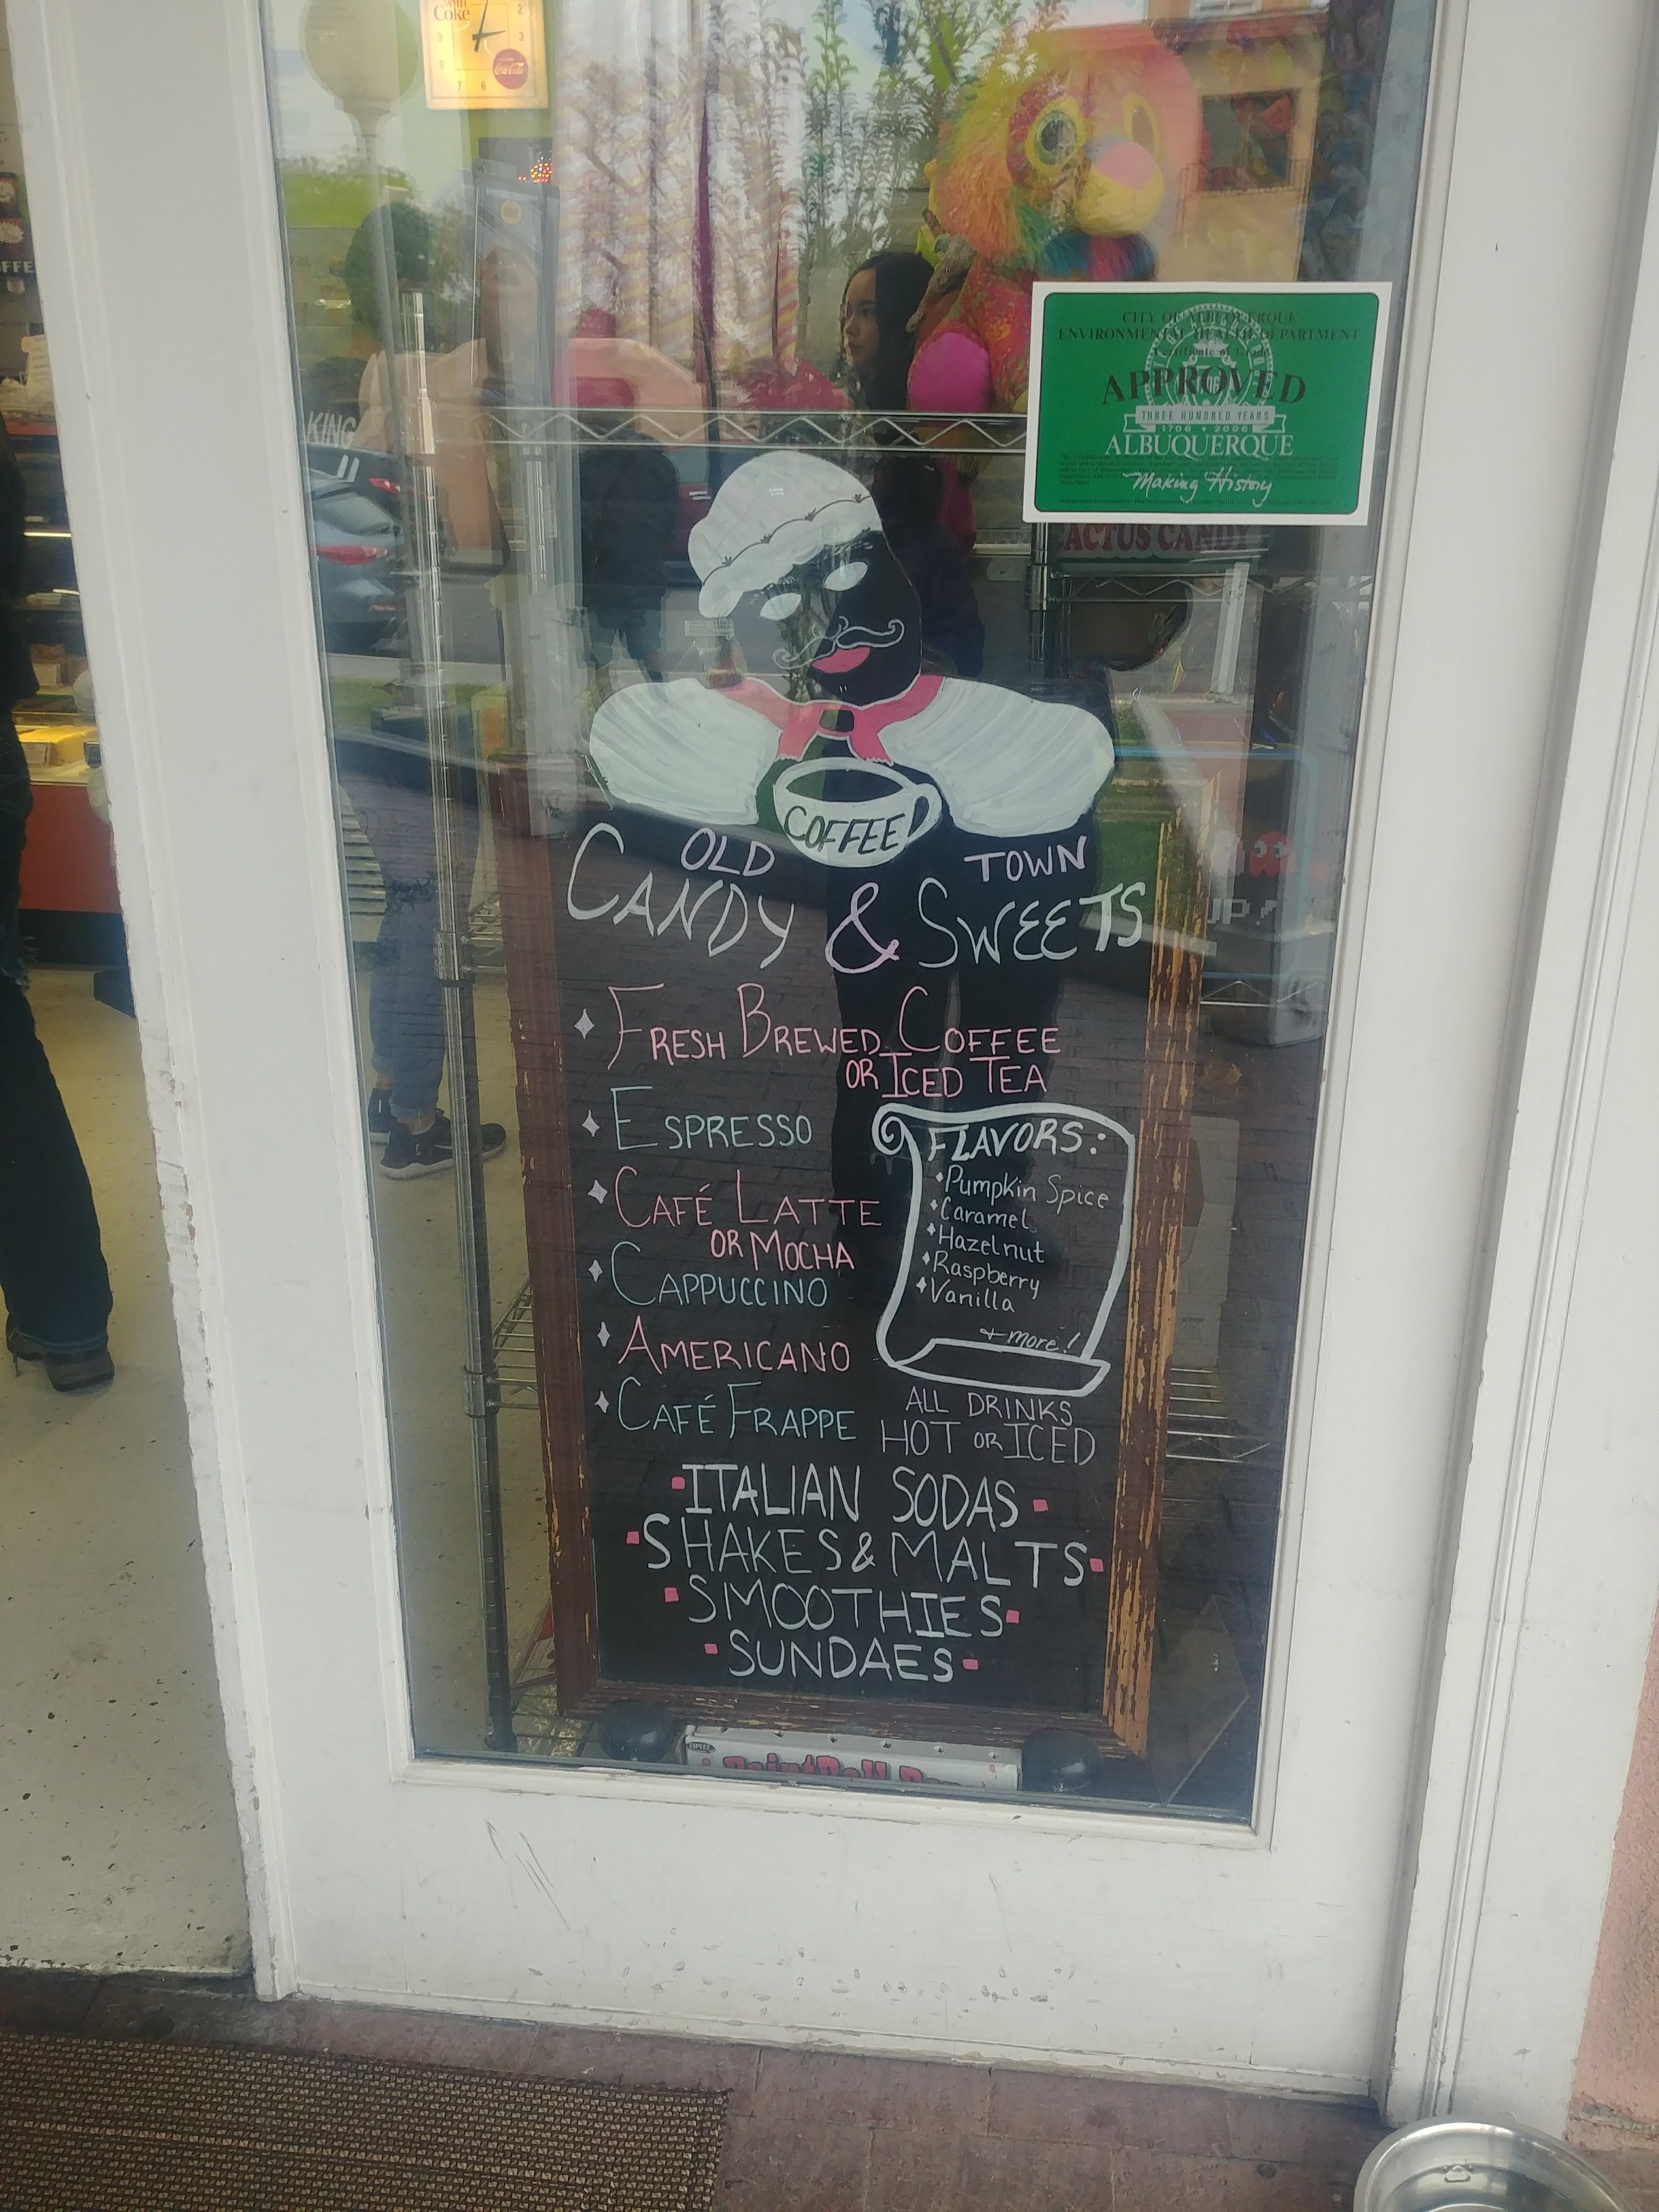 with
Coke
2
3
9
8
7 6
Coca-Cola
FFE
KING
CITY OF ALBUQUERQUE
ENVIRONMENTAL HEALTH DEPARTMENT
Certificate of Grade
APPROVED
THREE HUNDRED YEARS
1706 • 2006
ALBUQUERQUE
Making History
CACTUS CANDY
COFFEE
OLD TOWN
CANDY & SWEETS
FRESH BREWED COFFEE
OR ICED TEA
ESPRESSO
CAFÉ LATTE
OR MOCHA
CAPPUCCINO
AMERICANO
CAFÉ FRAPPE
FLAVORS:
Pumpkin Spice
Caramel
Hazelnut
Raspberry
Vanilla
+ more!
ALL DRINKS
HOT OR ICED
ITALIAN SODAS
SHAKES & MALTS
SMOOTHIES
SUNDAES